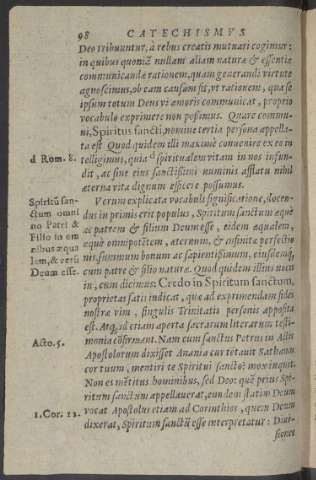 98 CATECHISMVS
Deo tribuuntur, à rebus creatis mutuari cogimur:
in quibus quoniã nullam aliam naturæ & essentiæ
communicandæ rationem, quàm generandi virtute
agnoscimus, ob eam causam fit, vt rationem, qua se
ipsum totum Deus vi amoris communicat, proprio
vocabulo exprimere non possimus. Quare commu-
ni, Spiritus sancti, nomine tertia persona appella-
ta est. Quod quidem illi maximè conuenire ex eo in
d Rom. 8.
telligimus, quia d spiritualem vitam in nos infun-
dit, ac sine eius sanctissimi numinis afflatu nihil
æterna vita dignum efficere possumus.
Spiritũ san-
ctum omni
no Patri &
Filio in om
nibus æqua
lem, & verũ
Deum esse.
Verùm explicata vocabuli significatione, docen-
dus in primis erit populus, Spiritum sanctum æquè
ac patrem & filium Deum esse, eidem æqualem,
æquè omnipotẽtem, æternum, & infinitæ perfectio
nis, summum bonum ac sapientissimum, eiusdemq́;
cum patre & filio naturæ. Quod quidem illius vocis
in, cum dicimus: Credo in Spiritum sanctum,
proprietas satis indicat, quæ ad exprimendam fidei
nostræ vim, singulis Trinitatis personis apposita
est. Atq́; id etiam aperta sacrarum literarum testi-
monia cõfirmant. Nam cum sanctus Petrus in Actis
Acto. 5.
Apostolorum dixisset Anania cur tẽtauit Sathanas
cor tuum, mentiri te Spiritui sancto: mox inquit.
Non es mẽtitus hominibus, sed Deo: quẽ prius Spi-
ritum sanctum appellauerat, eundem statim Deum
1. Cor. 12.
vocat Apostolus etiam ad Corinthios, quem Deum
dixerat, Spiritum sanctũ esse interpretatur: Diui-
siones